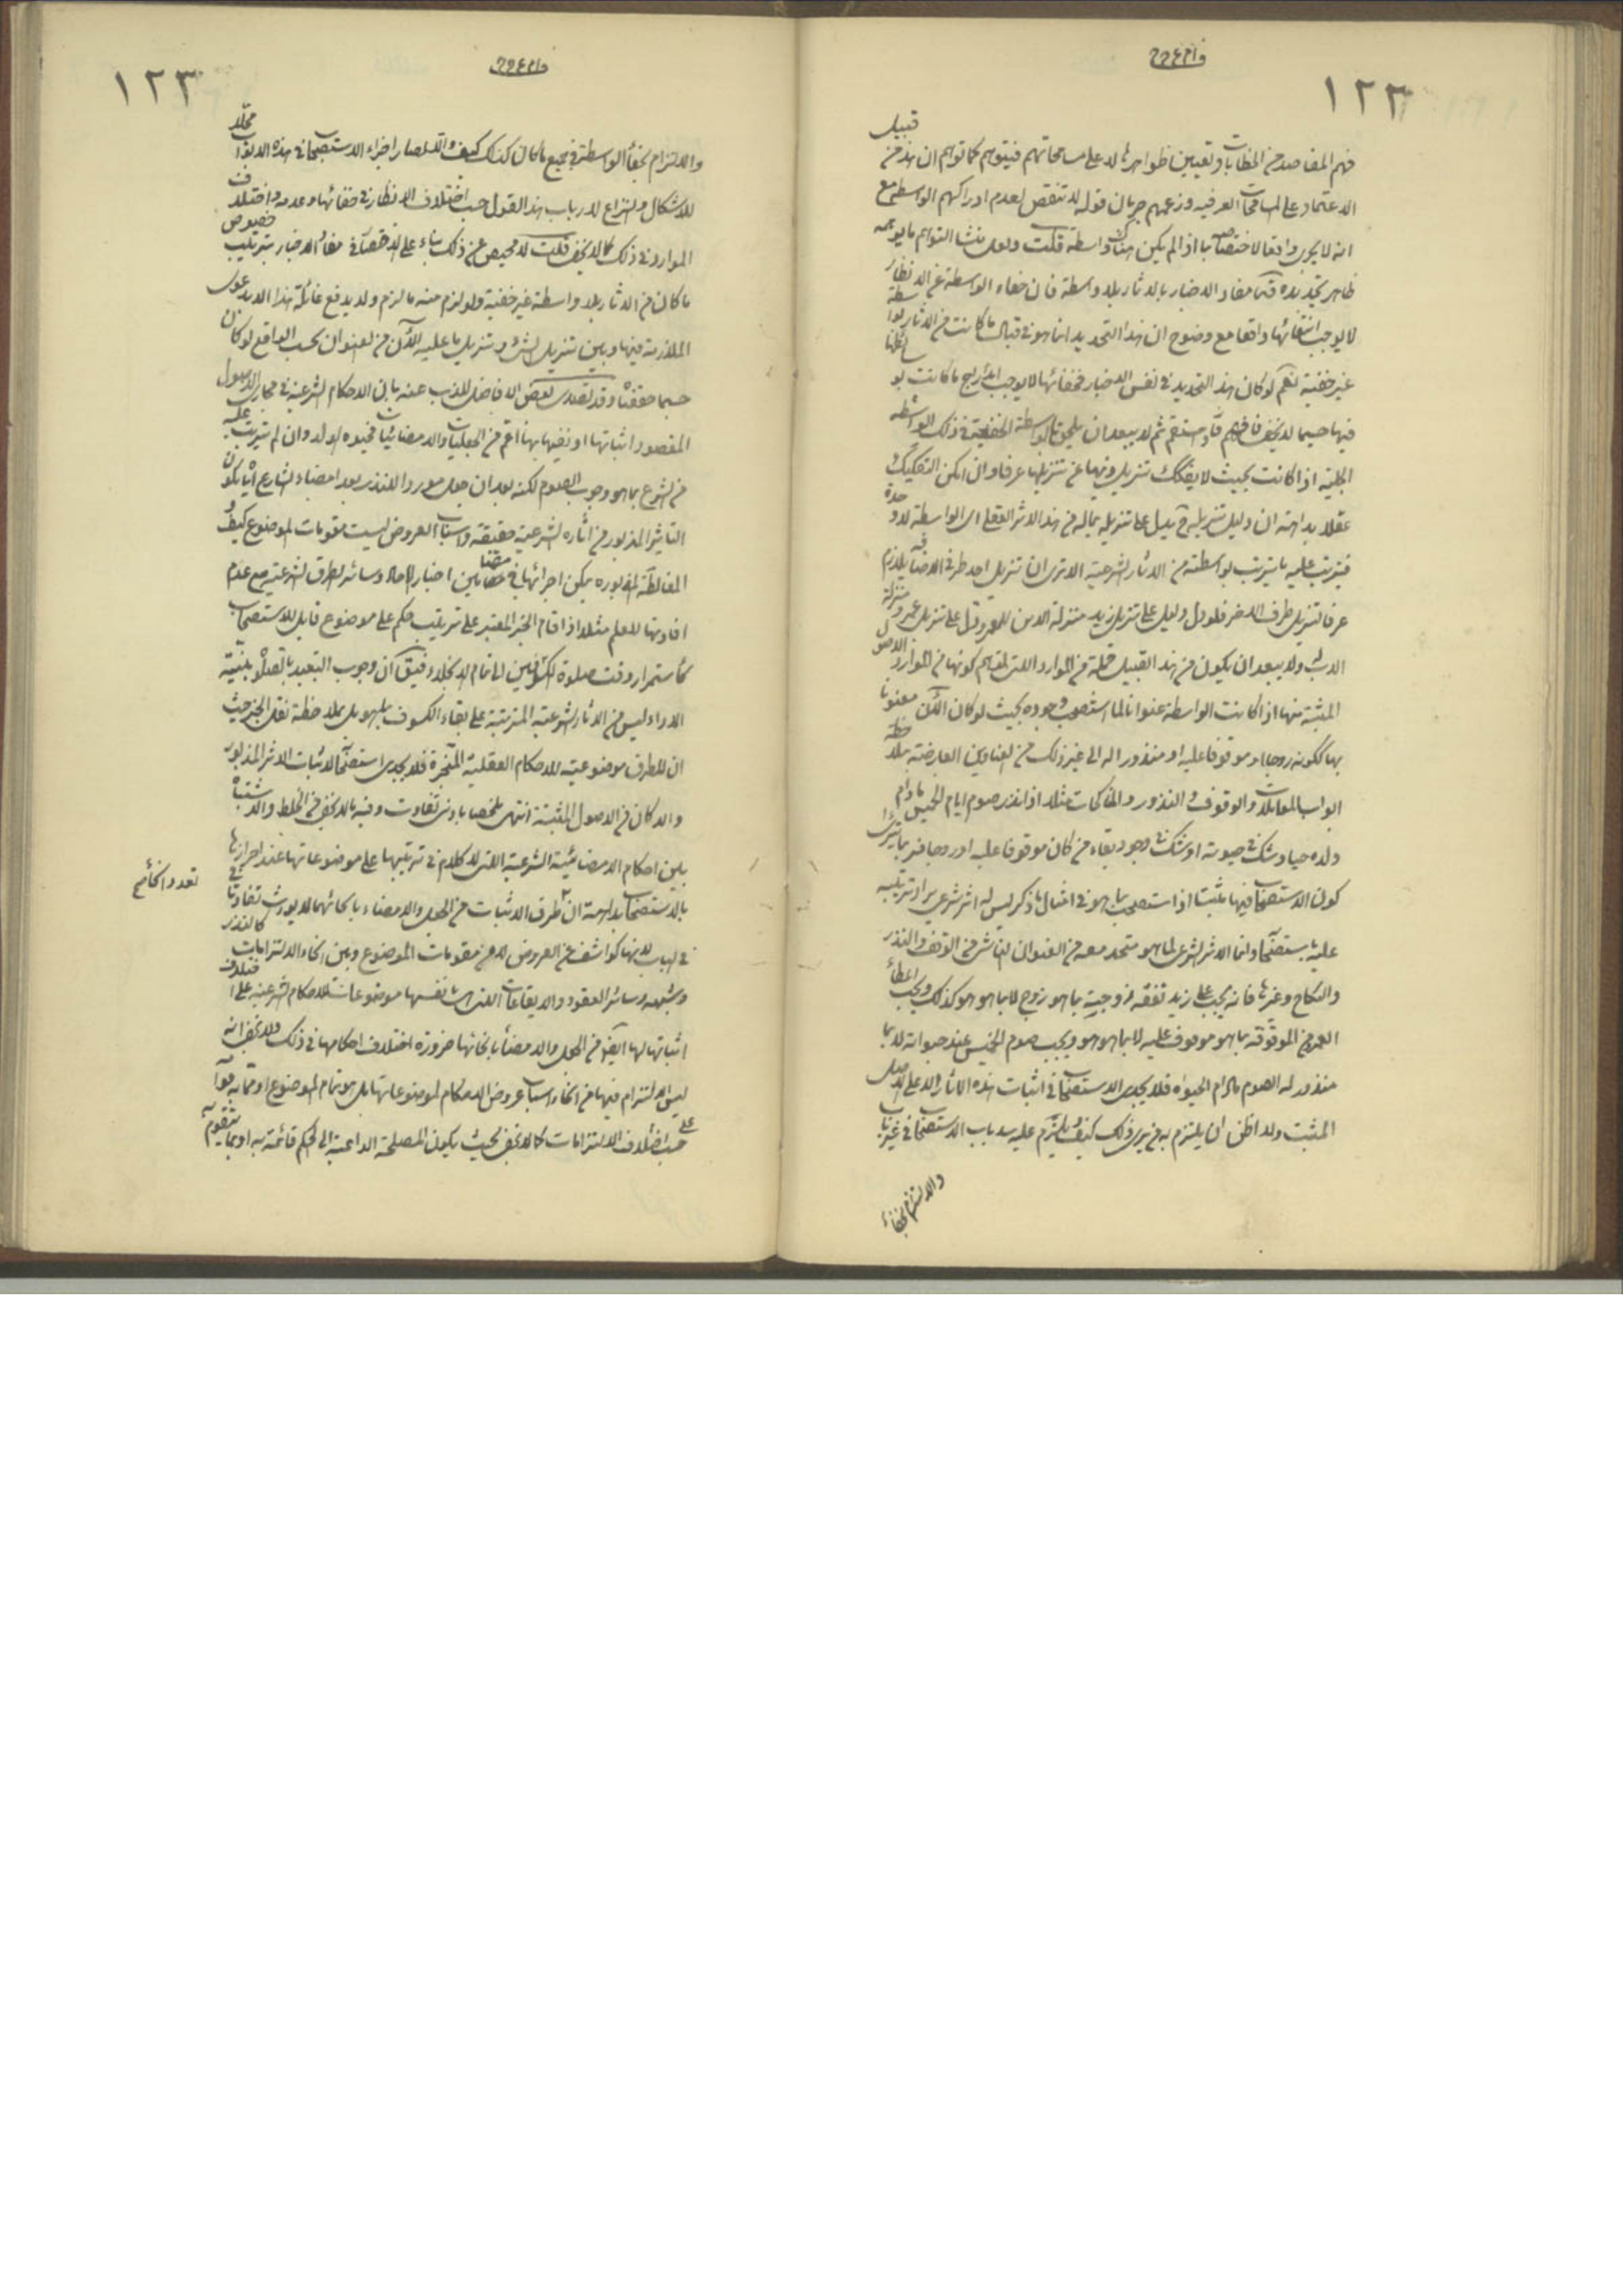 ١٢٣
فهم المقاصد من الخطابات وتعيين ظواهرها لا على مسامحاتهم فيتوهم كما توهم ان هذا من قبيل
الاعتماد على المسامحات العرفيه وزعمهم جريان قوله لا تنقض لعدم ادراكهم الواسطة مع
انه لا يجرى واقعا لاختصاصه بما اذا لم يكن هناك واسطة قلت ولعل منشأ التوهم ما يوهمه
ظاهر تحديده مفاد الاخبار بالاثار بلا واسطة فان خفاء الواسطة عن الانظار
لا يوجب انتفائها واقعا مع وضوح ان هذا التحديد انما هو فى قبال ما كانت من الاثار بواسطة
غير خفية نعم لو كان هذا التحديد فى نفس الاخبار فخفائها لا يوجب ما كانت
فيها حسبما لا يخفى فافهم ثم لا يبعد ان يلحق بالواسطة الخفية فى ذلك الواسطه
الجلية اذا كانت بحيث لا يفكك تنزيل ذيها عن تنزيلها عرفا وان امكن التفكيك
عقلا بداهة ان دليل تنزيله يدل على تنزيله بماله من هذا الاثر العقلى اى الواسطة لا وحده
فيترتب عليه ما يترتب بواسطته من الاثار الشرعية الا ترى ان تنزيل احد طرفى الاضافة يلازم
عرفا تنزيل طرف الاخر فلو دل دليل على تنزيل زيد منزلة الابن للعمرو دل على تنزيل عمرو منزلة
الاب ولا يبعد ان يكون من هذا القبيل جملة من الموارد التى لتوهم كونها من موارد الاصول
المثبتة منها اذا كانت الواسطة عنوانا لما استصحب وجوده بحيث لو كان الآن معنونا
بها ككونه زوجا او موقوفا عليه او منذورا له الى غير ذلك من العناوين العارضة بملاحظة
ابواب المعاملات والوقوف والنذور والمناكحات مثلا اذا نذر صوم ايام الخميس مادام
ولده حيا وشك فى حيوته او شك فى وجود بقاء من كان موقوفا عليه او زوجا فربما يترائى
كون الاستصحاب فيها مثبتا اذا استصحب بما هو فى امثال ما ذكر ليس له اثر شرعى يراد ترتيبه
عليه باستصحابه وانما الاثر الشرعى لما هو متحد معه من العنوان الناشى من الوقف والنذر
والنكاح وغيرها فانه يجب على زيد نفقة زوجيته بما هو زوج لا بما هو هو كذلك ويجب اعطاء
العين الموقوفة بما هو موقوف عليه لا بما هو هو ويجب صوم الخميس عند حيوته لا بما
منذور له الصوم مادام الحيوة فلا يجدى الاستصحاب فى اثبات هذه الاثار الا على الاصل
المثبت ولا اظن ان يلتزم به من يرى ذلك كيف ويلتزم عليه سد باب الاستصحاب فى غير باب
والالتزام بخفاء
١٢٣
والالتزام بخفاء الواسطة فى جميع ما كان كذلك كيف والا لصار اجراء الاستصحاب فى هذه الابواب محلا
للاشكال والنزاع لارباب هذا القول حسب اختلاف الانظار فى خفائها وعدمه واختلاف
الموارد فى ذلك كما لا يخفى قلت لا محيص عن ذلك بناء على الاختصار فى مفاد الاخبار بترتيب خصوص
ما كان من الاثار بلا واسطة غير خفية ولو لزم منه ما لزم ولا يدفع غائلة هذا الا بدعوى
الملازمة فيها وبين تنزيل الشئ وتنزيل ما عليه الآن من العنوان بحسب الواقع لو كان
حسبما حققناه وقد تصدى بعض الافاضل للذب عنه بان الاحكام الشرعية فى مجارى الاصول
المقصود اثباتها او نفيها بها اعم من الجعليات والامضائيات فحيوة الولد وان لم يترتب عليه
من الشرع بما هو وجوب الصوم لكنه بعد ان جعل موردا للنذر بعد امضاء الشارع اياه يكون
التاثير المذبور من آثاره الشرعية حقيقة واسباب العروض ليست مقومات الموضوع كيف و
المغالطة المذبوره يمكن اجرائها فى مقتضا مضامين اخبار الاحاد وسائر الطرق الشرعية مع عدم
افادتها للعلم مثلا اذا قام الخبر المعتبر على ترتيب حكم على موضوع قابل للاستصحاب
كاستمرار وقت صلوة الكسوفين الى تمام الانجلاء فيق ان وجوب التعبد بالصلوة بنية
الاداء ليس من الاثار الشرعية المترتبة على بقاء الكسوف بما هو بل بملاحظة نقل الخبر حيث
ان للطرق موضوعية للاحكام العقلية المنجزة فلا يجدى استصحاب لاثبات الاثر المذبور
والا كان من الاصول المثبتة انتهى ملخصا بادنى تفاوت وفيه ما لا يخفى من الخلط والاشتباه
بين احكام الامضائية الشرعية التى لا كلام فى ترتيبها على موضوعاتها عند احرازها
بالاستصحاب بداهة ان طرق الاثبات من الجعل والامضاء بانحائهما لا يورث تفاوتا فى
الباب لانها كواشف عن العروض لا من مقومات الموضوع وبين انحاء الالتزامات كالنذر
وشبهه وسائر العقود والايقاعات التى هى بنفسها موضوعات للاحكام الشرعية على اختلاف
اثباتها لها ايضا من الجعل والامضاء بانحائها ضرورة اختلاف احكامها فى ذلك ولا يخفى انه
ليس الالتزام فيها من انحاء اسباب عروض الاحكام لموضوعاتها بل هو تمام الموضوع او مما به قوامه
على حسب اختلاف الالتزامات كما لا يخفى بحيث يكون المصلحة الداعية الى الحكم قائمة به او بما يتقوم به
تعدد انحاء